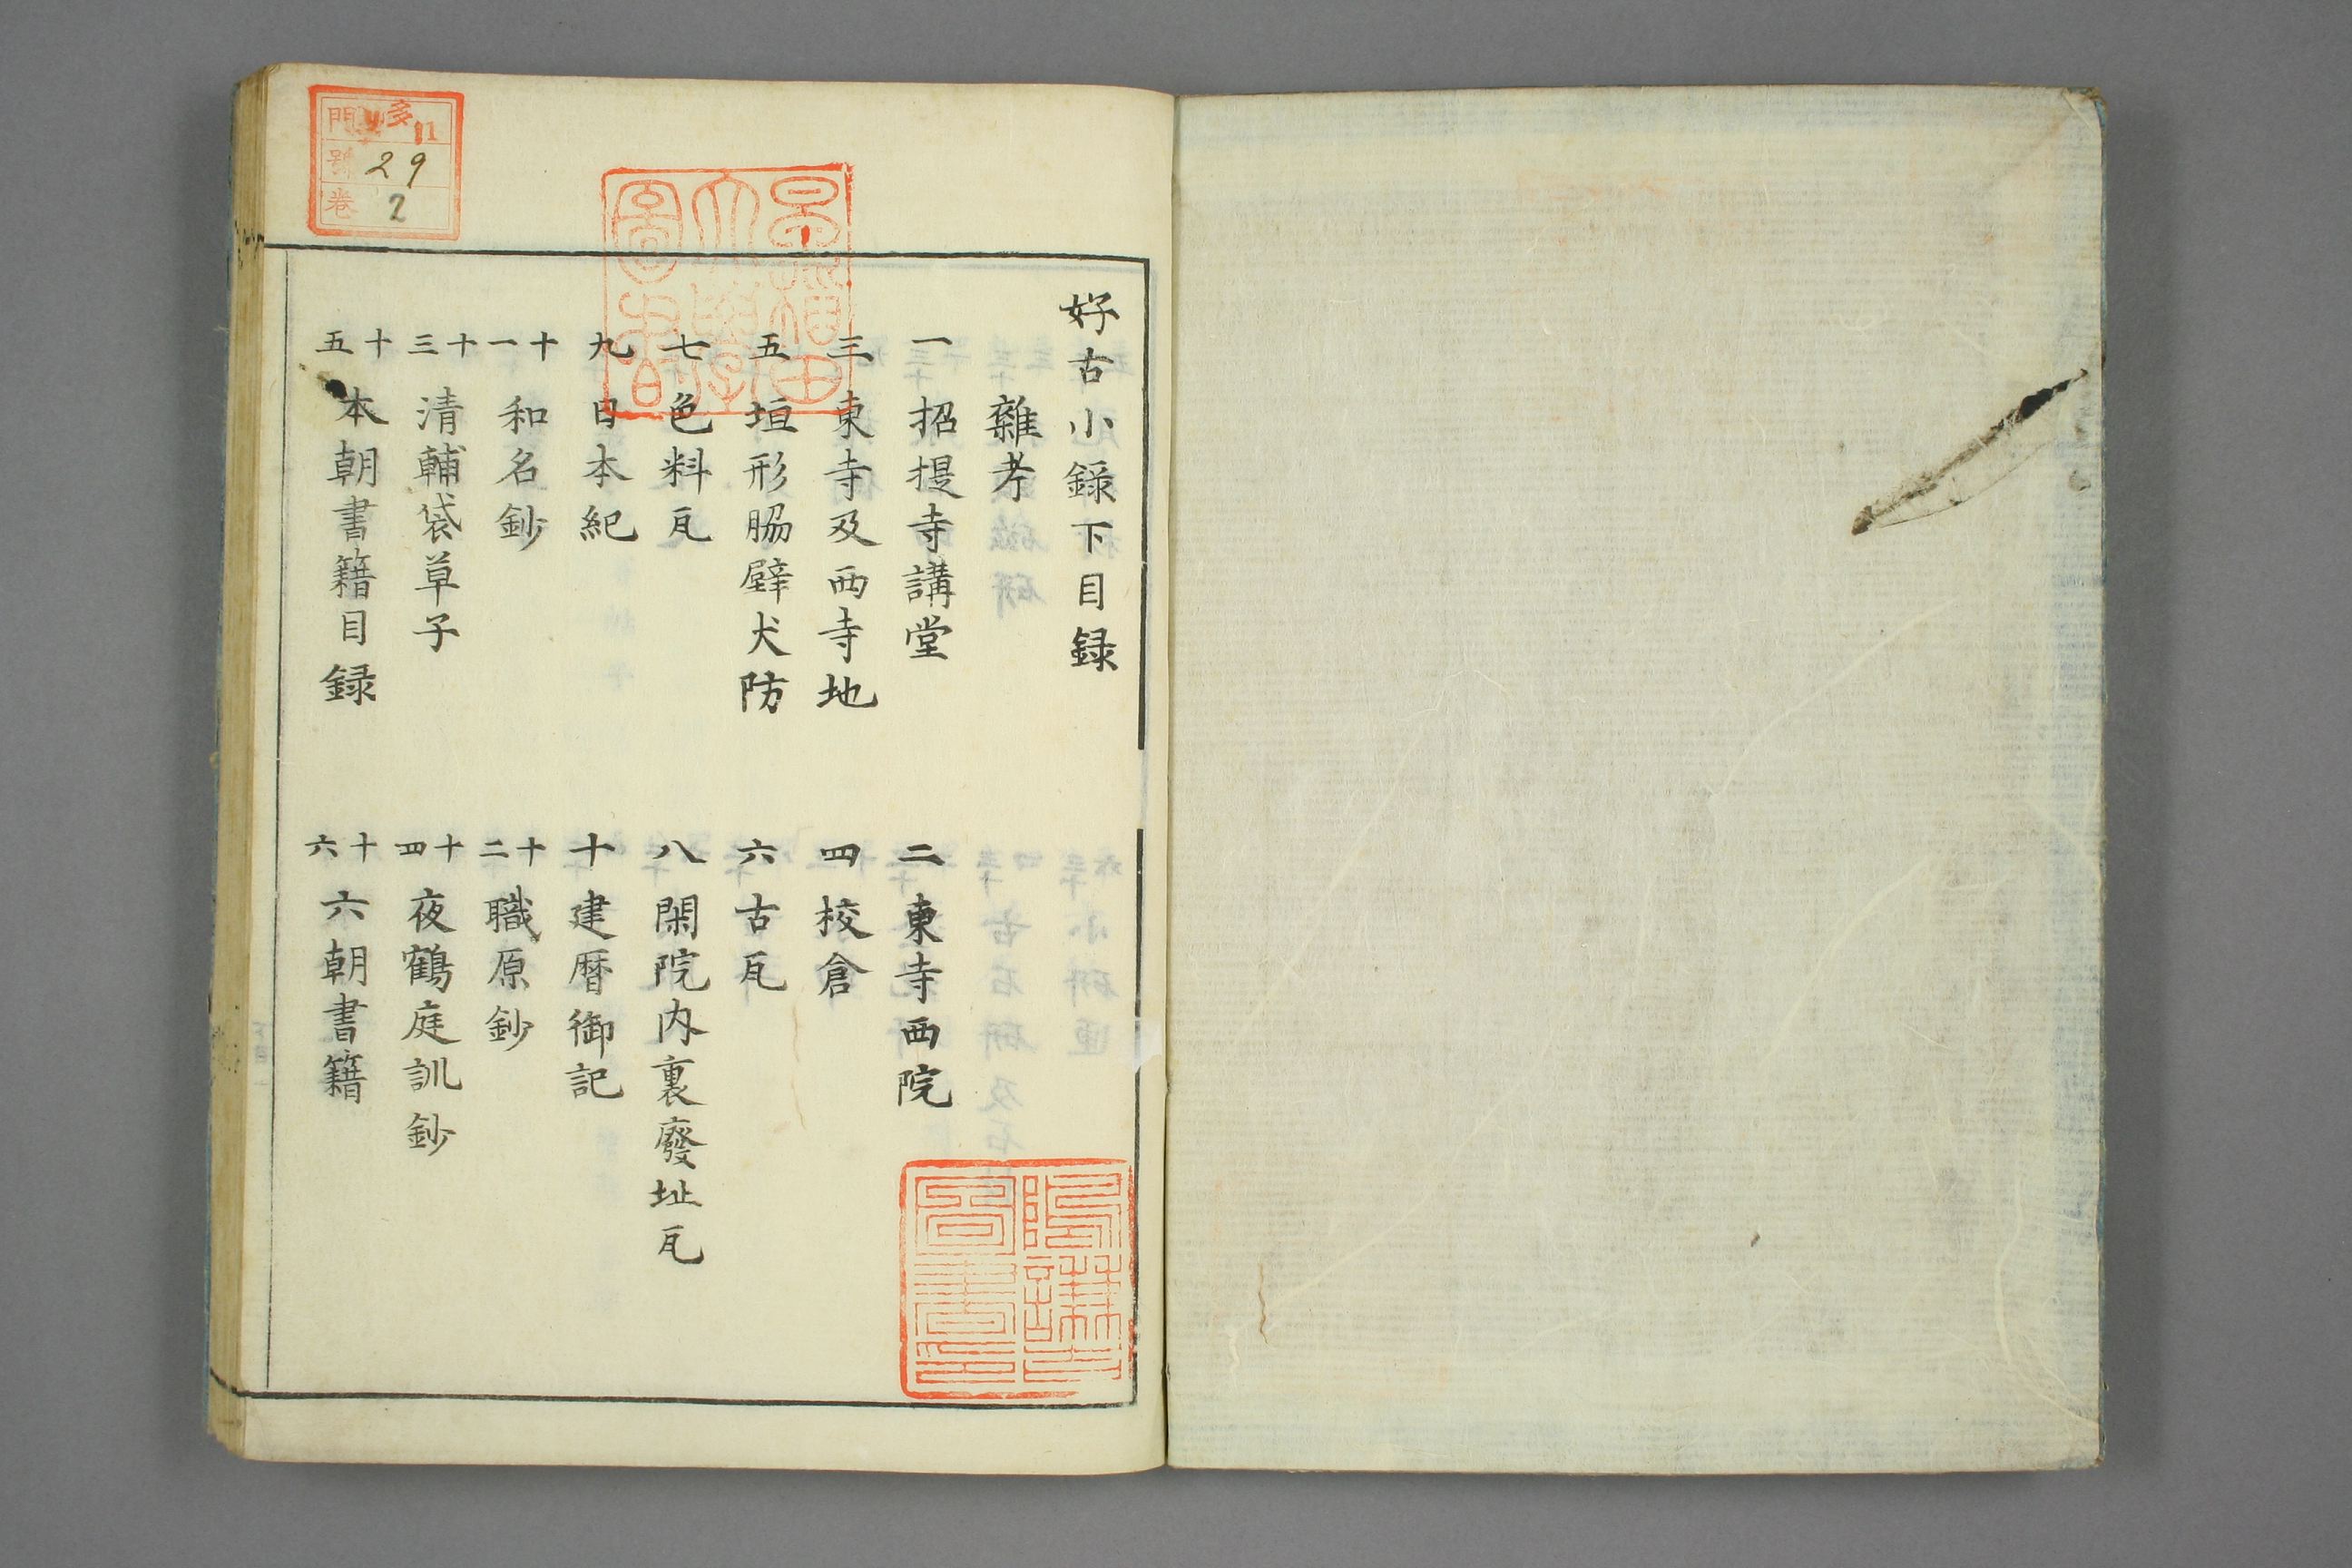 好古小錄下目録
雜考
一 招提寺講堂
二 東寺西院
三 東寺及西寺地
四 校倉
五 垣形脇壁犬防
六 古瓦
七 色料瓦
八 閑院内裏廢址瓦
九 日本紀
十 建暦御記
十一 和名鈔
十二 職原鈔
十三 清輔袋草子
十四 夜鶴庭訓鈔
十五 本朝書籍目録
十六 六朝書籍
門
號 29
卷 2
早稲田大學圖書